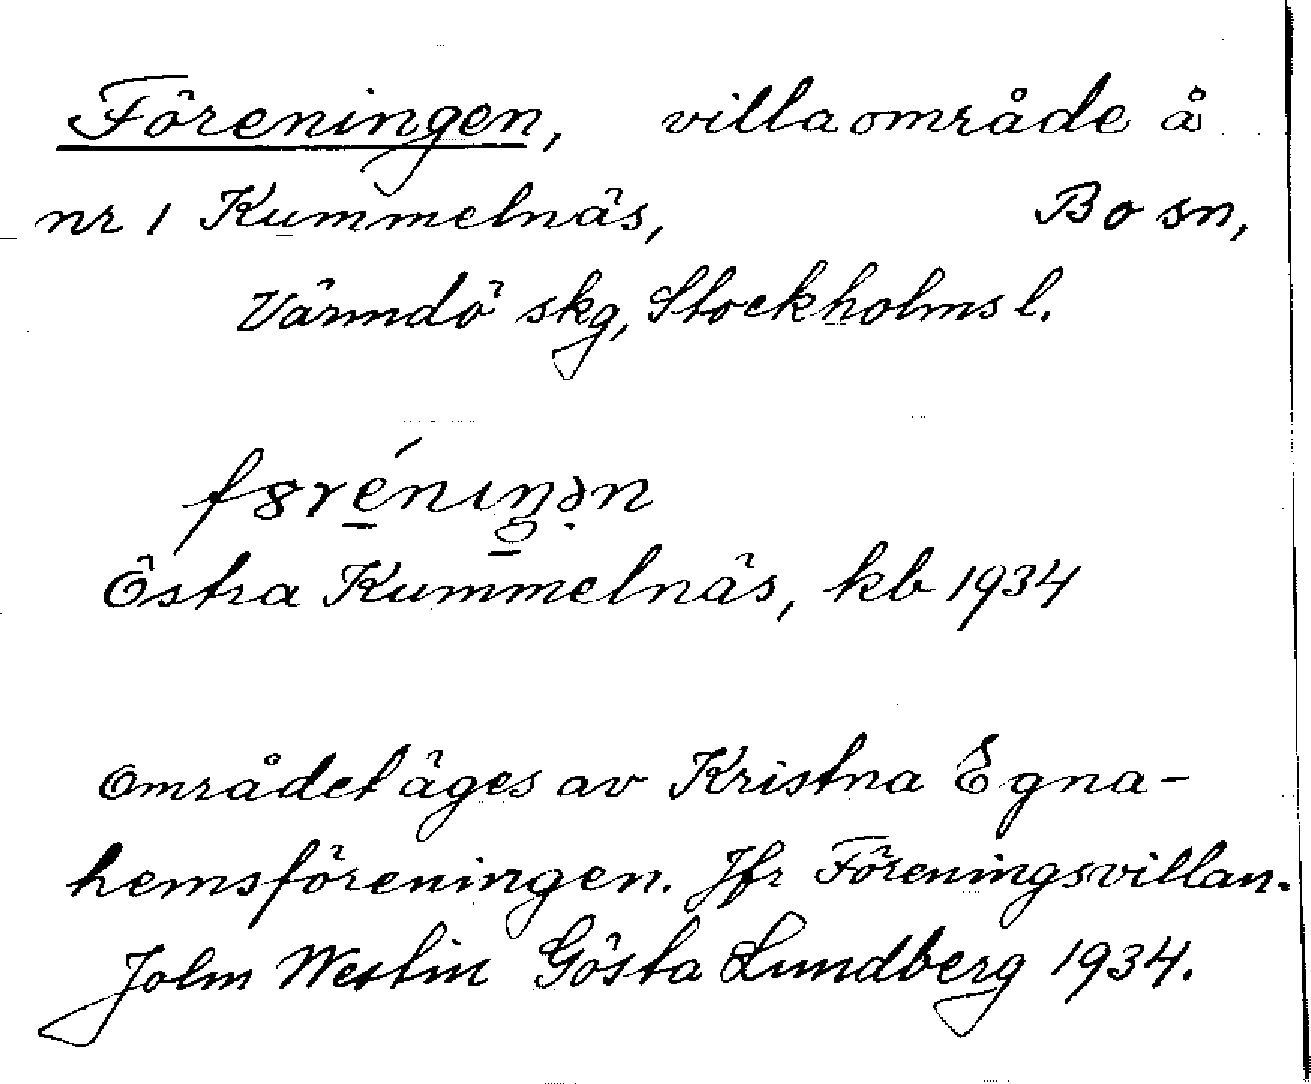 Föreningen, villaområde å
nr 1 Kummelnäs, Bo sn,
Värmdö skg, Stockholms l.
Östra Kummelnäs, kb 1934
Området äges av Kristna Egna-
hemsföreningen. Jfr Föreningsvillan.
John Westin Gösta Lundberg 1934.